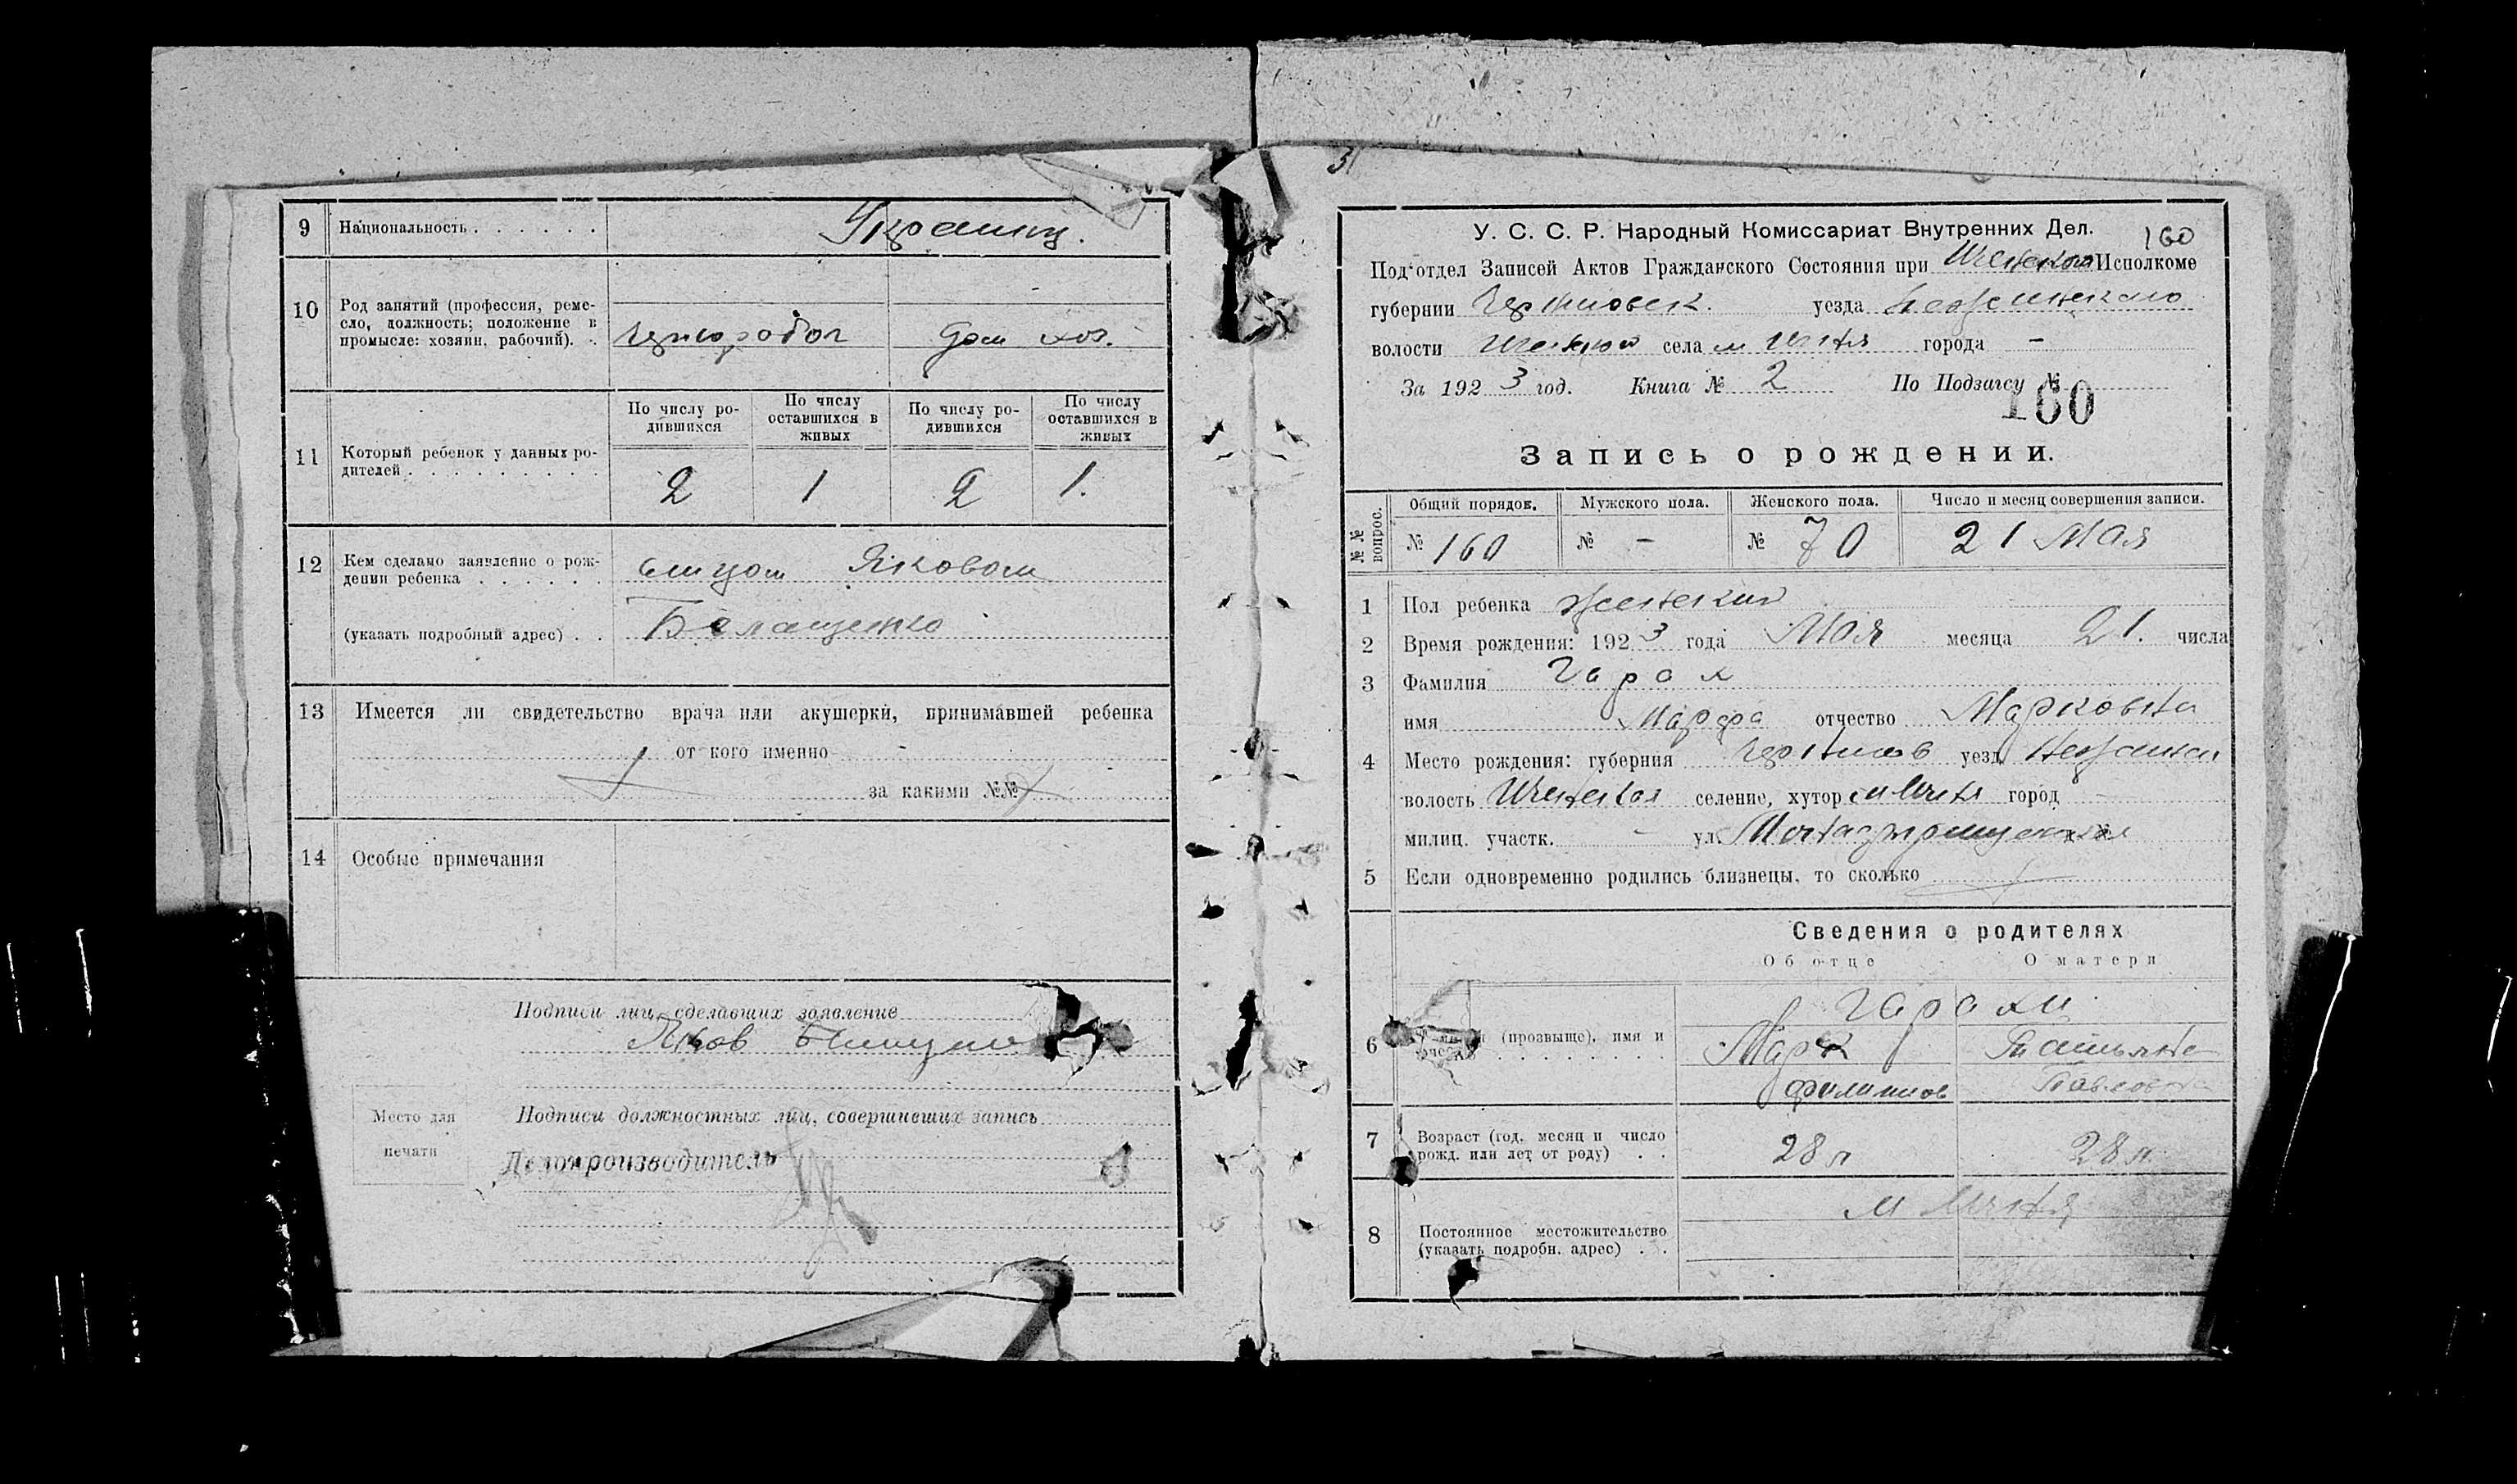 9 Национальность . . . . . . Украинц.
10 Род занятий (профессия, реме-
сло, должность; положение в
промысле: хозяин, рабочий). . чернорабоч дом хоз.
11 Который ребенок у данных ро-
дителей . . . . . . . . .
По числу ро-
дившихся
По числу
оставшихся в
живых
По числу ро-
дившихся
По числу
оставшихся в
живых
2 1 2 1.
12 Кем сделано заявление о рож-
дении ребенка . . . . . . Яковом
(указать подробный адрес) . .
13 Имеется ли свидетельство врача или акушерки, принимавшей ребенка
от кого именно -
за какими №№
14 Особые примечания
Подписи лиц, сделавших заявление
Яков
Место для
печати
Подписи должностных лиц, совершивших запись
Делопроизводитель
У. С. С. Р. Народный Комиссариат Внутренних Дел.
160
Под‘отдел Записей Актов Гражданского Состояния при Исполкоме
губернии Черниговск. уезда
волости села м города -
За 1923 год. Книга № 2 По Подзагсу №
160
Запись о рождении.
№ №
вопрос.
Общий порядок. Мужского пола. Женского пола. Число и месяц совершения записи.
№ 160 № - № 70 21 Мая
1 Пол ребенка женский
2 Время рождения: 1923 года Мая месяца 21. числа
3 Фамилия Гарах
имя Марфа отчество Марковна
4 Место рождения: губерния Чернигов уезд
волость селение, хутор город
милиц. участк. - ул.
5 Если одновременно родились близнецы, то сколько
Сведения о родителях
Об отце О матери
6 (прозвище), имя и
Гарахи
Марк Татьяна
Филиппов Павловна
7 Возраст (год, месяц и число
рожд. или лет от роду) . . 28 л 28 л.
8 Постоянное местожительство
(указать подробн. адрес) . .